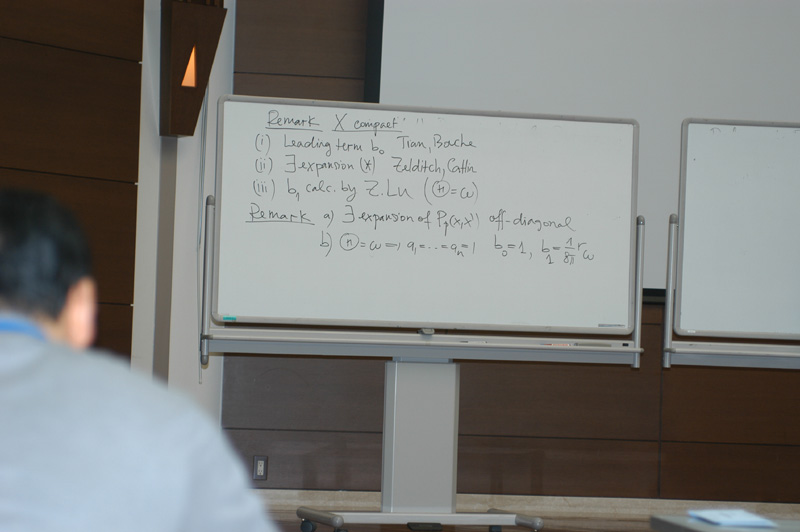 Remark X compact
(i) Leading term b₀ Tian, Bouche
(ii) ∃ expansion (*) Zelditch, Catlin
(iii) b₁ calc. by Z. Lu (Ⓗ = ω)
Remark a) ∃ expansion of Pₚ(x,x') off-diagonal
b) Ⓗ = ω ⟹ a₁ = ... = aₙ = 1 b₀ = 1, b₁ = 1/8π r_ω